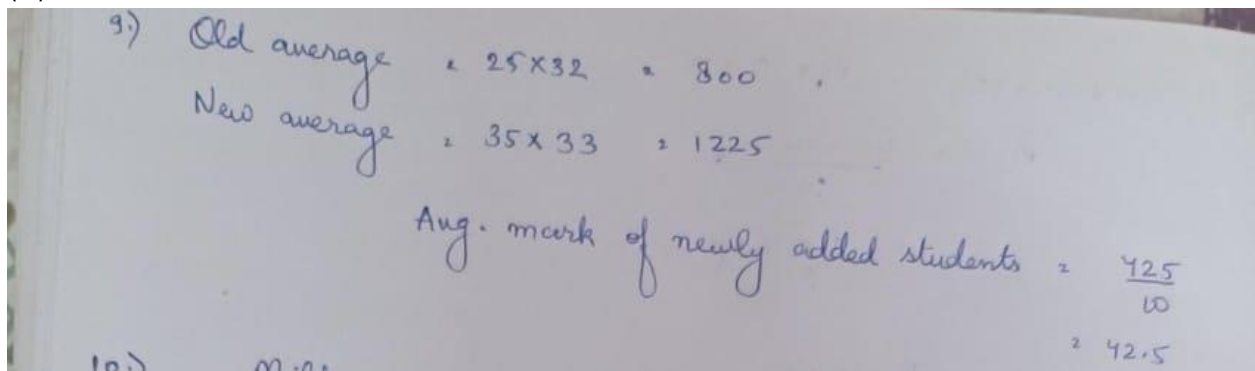 9.) Old average = 25×32 = 800 .
New average = 35×33 = 1225
Avg. mark of newly added students = 425/10
= 42.5
10.)